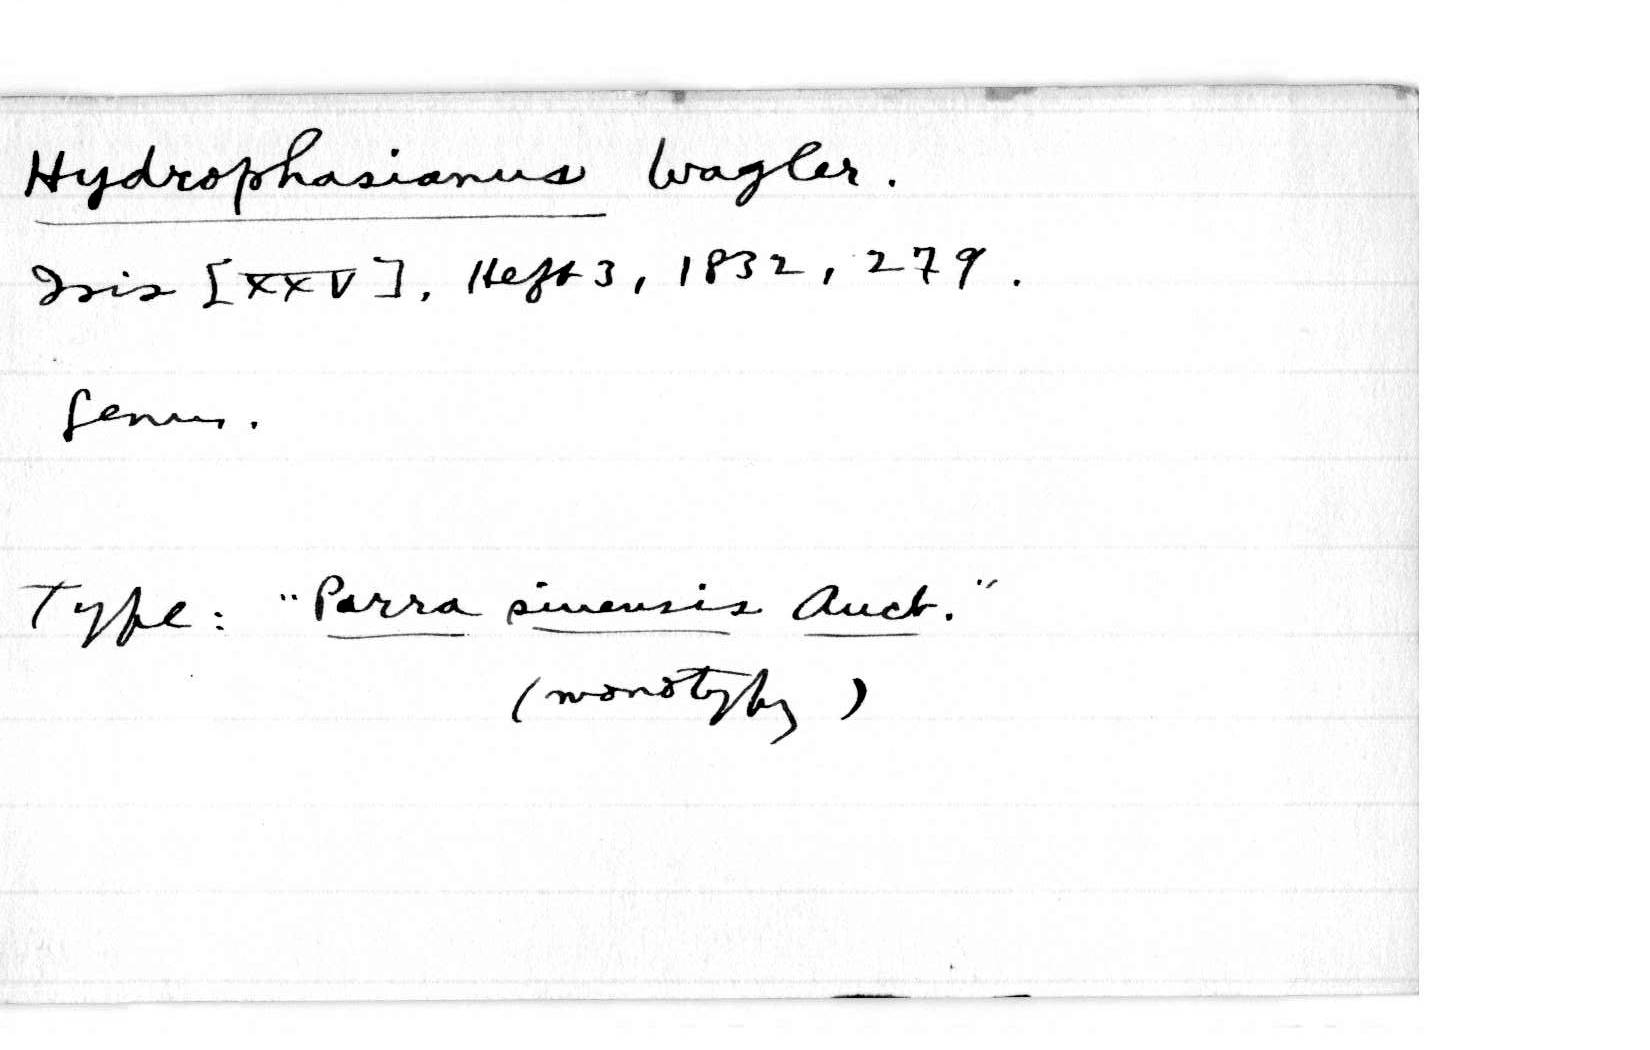 Hydrophasianus Wagler.
Isis [XXV], Heft 3, 1832, 279.
Genus.
Type: "Parra sinensis Auct."
(monotypy)